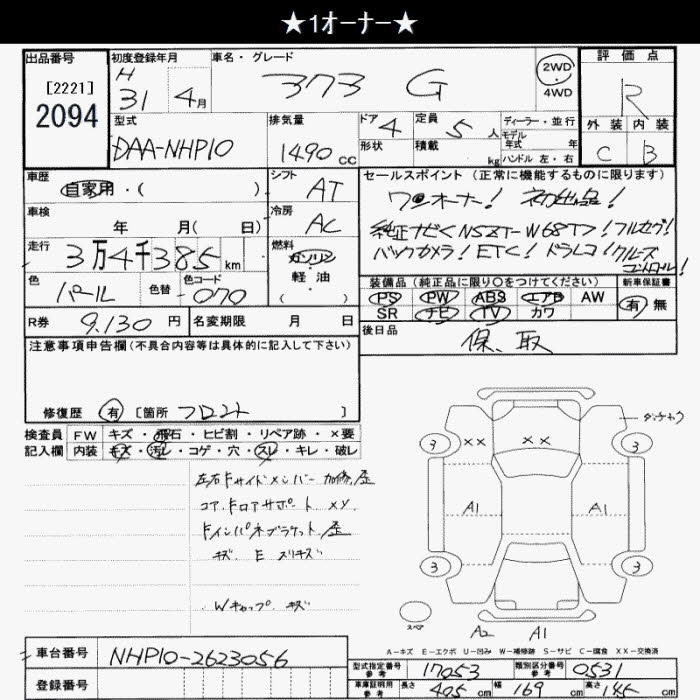 ★1ｵｰﾅｰ★
出品番号
[2221]
2094
初度登録年月
H
31年 4月
車名・グレード
アクア G
2WD
4WD
評価点
R
外装 内装
C B
型式
DAA-NHP10
排気量
1490 cc
ドア 4
形状
定員 5 人
積載 kg
ディーラー・並行
モデル
年式 年
ハンドル 左・右
車歴
自家用・( )
シフト
AT
車検
年 月( 日)
冷房
AC
走行
3万4千385 km
燃料
ガソリン
軽油
( )
色
パール
色替
色コード
070
R券 9.130 円
名変期限 月 日
セールスポイント (正常に機能するものに限ります)
ワンオーナー! 初出品!
純正ナビ<NSZT-W68T>! フルセグ!
バックカメラ! ETC! ドラレコ! クルーズ
コントロール!
装備品 (純正品に限り○をつけてください)
PS PW ABS エアB AW
SR ナビ TV カワ
新車保証書
有 無
後日品
保、取
注意事項申告欄 (不具合内容等は具体的に記入して下さい)
修復歴 有 [箇所 フロント ]
検査員
記入欄
FW キズ・飛石・ヒビ割・リペア跡・×要
内装 キズ・汚レ・コゲ・穴・スレ・キレ・破レ
左右Fサイドメンバー 加修、歪
コア、Fロアサポート XX
Fインパネブラケット、歪
キズ E スリキズ
Wキャップ キズ
3
××
××
3
A1
A1
3
3
スペア
A2
A1
A-キズ E-エクボ U-凹み W-補修跡 S-サビ C-腐食 XX-交換済
車台番号
NHP10-2623056
登録番号
型式指定番号
参考
17053
類別区分番号
参考
0531
車庫証明用
参考
長さ 405 cm 幅 169 cm 高さ 145 cm